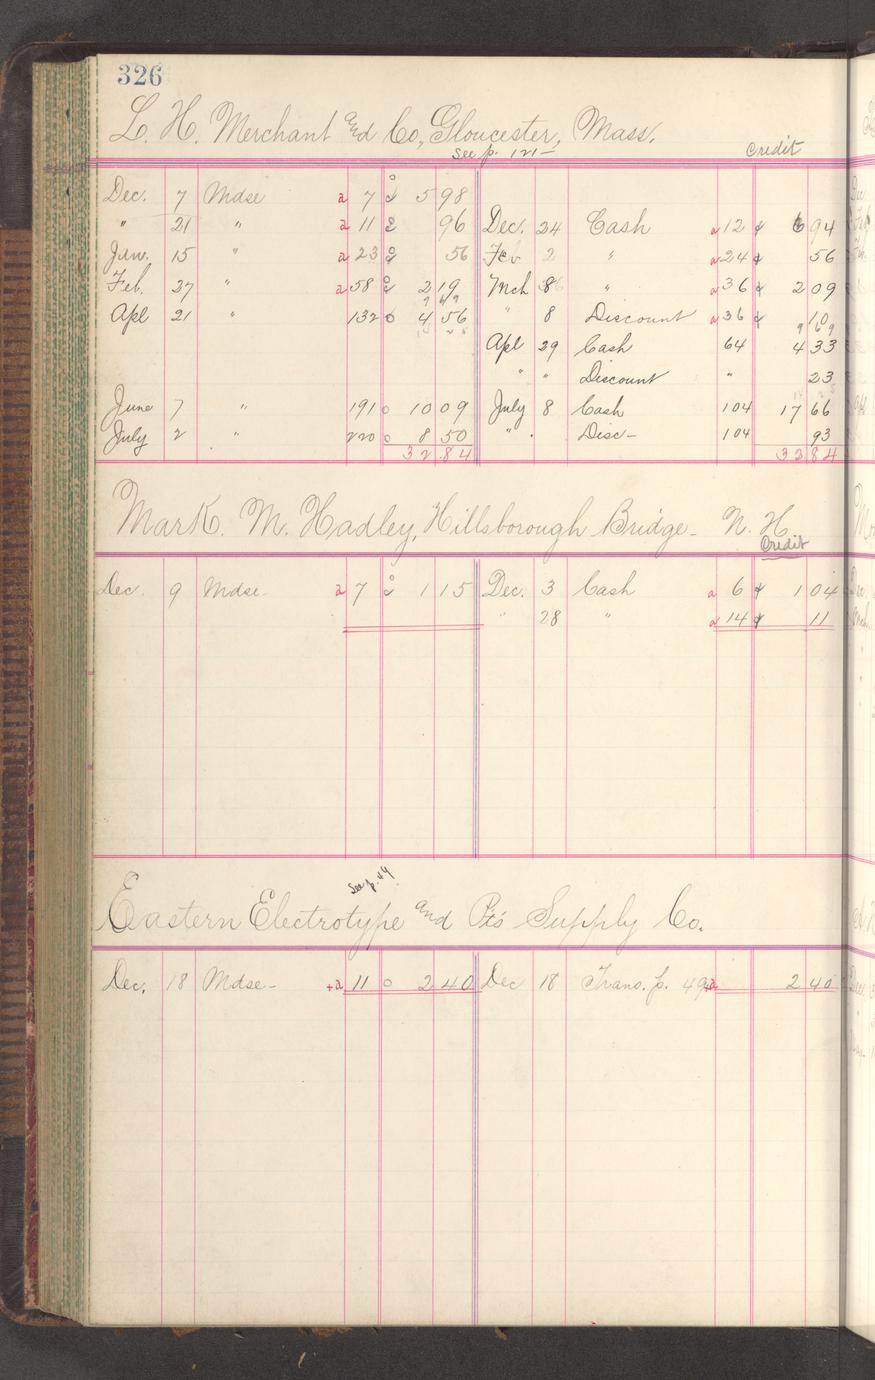 326
L. H. Merchant and Co, Gloucester, Mass.
See p. 121 Credit
Dec. 7 Mdse a 7 5 98
" 21 " a 11 96 Dec. 24 Cash a 12 6 94
Jan. 15 " a 23 56 Feb 2 " a 24 56
Feb. 27 " a 58 2 19 Mch 8 " a 36 2 09
Apl 21 " 132 4 56 " 8 Discount a 36 10
Apl 29 Cash 64 4 33
" " Discount " 23
June 7 " 191 10 09 July 8 Cash 104 17 66
July 2 " 220 8 50 " Disc- 104 93
32 84 32 84
Mark. M. Hadley, Hillsborough Bridge- N. H.
Credit
Dec. 9 Mdse- a 7 1 15 Dec. 3 Cash a 6 1 04
" 28 " a 14 11
See p. 49
Eastern Electrotype and Pt's Supply Co.
Dec. 18 Mdse- +a 11 o 2 40 Dec 18 Trans. p. 49 +a 2 40